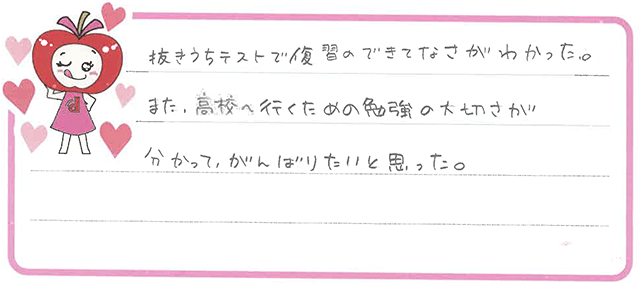 抜きうちテストで復習のできてなさがわかった。
また、高校へ行くための勉強の大切さが
分かって、がんばりたいと思った。
d